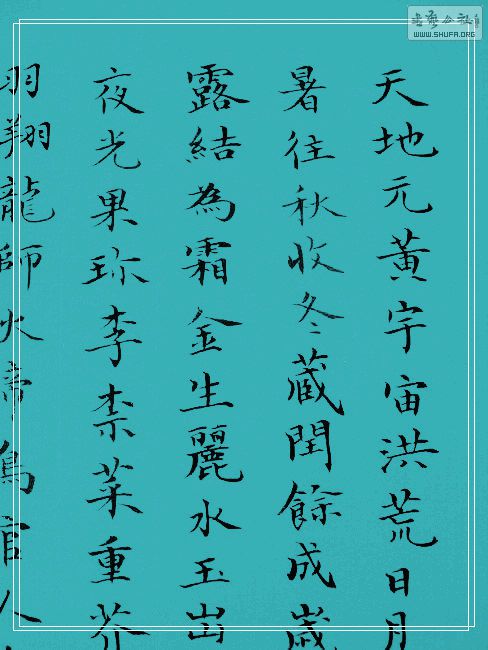 天地元黄宇宙洪荒日月
暑往秋收冬蔵閏餘成歲
露結為霜金生麗水玉出
夜光果珎李柰菜重芥
羽翔龍師火帝鳥官人
書藝公社
WWW.SHUFA.ORG